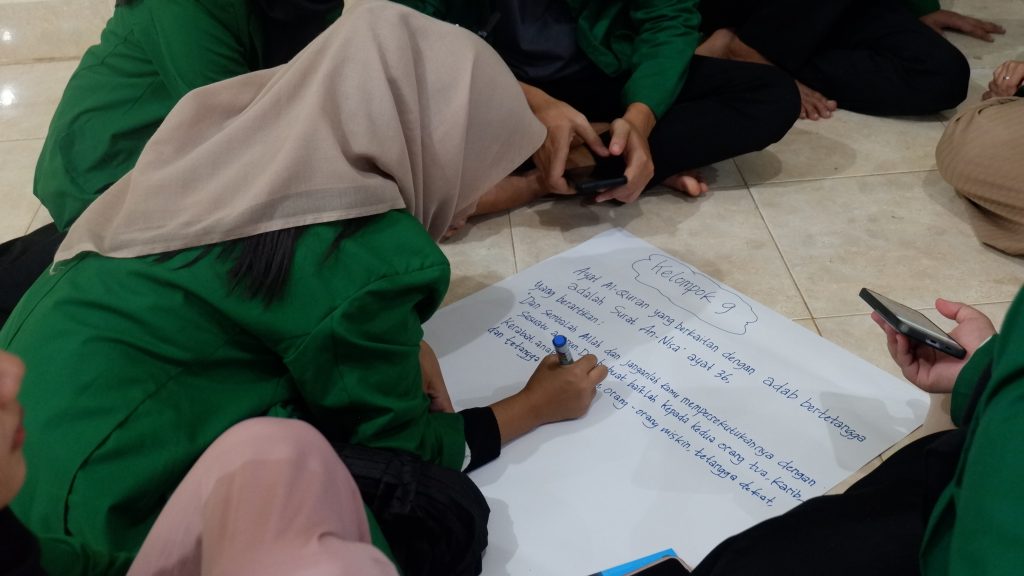 Kelompok 9
Ayat Al-Quran yang berkaitan dengan adab bertetangga
adalah Surat An-Nisa' ayat 36.
yang berartikan:
Dan sembalah Allah dan janganlah kamu mempersekutukannya dengan
Sesuatu apapun. Dan baiklah kepada kedua orang tua, karib-
kerabat, anak orang-orang miskin, tetangga dekat,
dan tetangga